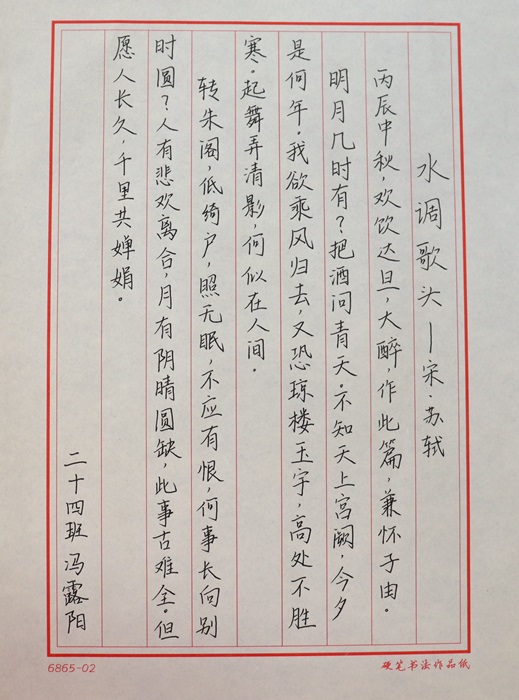 水调歌头—宋·苏轼
丙辰中秋,欢饮达旦,大醉,作此篇,兼怀子由.
明月几时有?把酒问青天.不知天上宫阙,今夕
是何年.我欲乘风归去,又恐琼楼玉宇,高处不胜
寒.起舞弄清影,何似在人间.
转朱阁,低绮户,照无眠,不应有恨,何事长向别
时圆?人有悲欢离合,月有阴晴圆缺,此事古难全.但
愿人长久,千里共婵娟。
二十四班 冯露阳
6865-02
硬笔书法作品纸